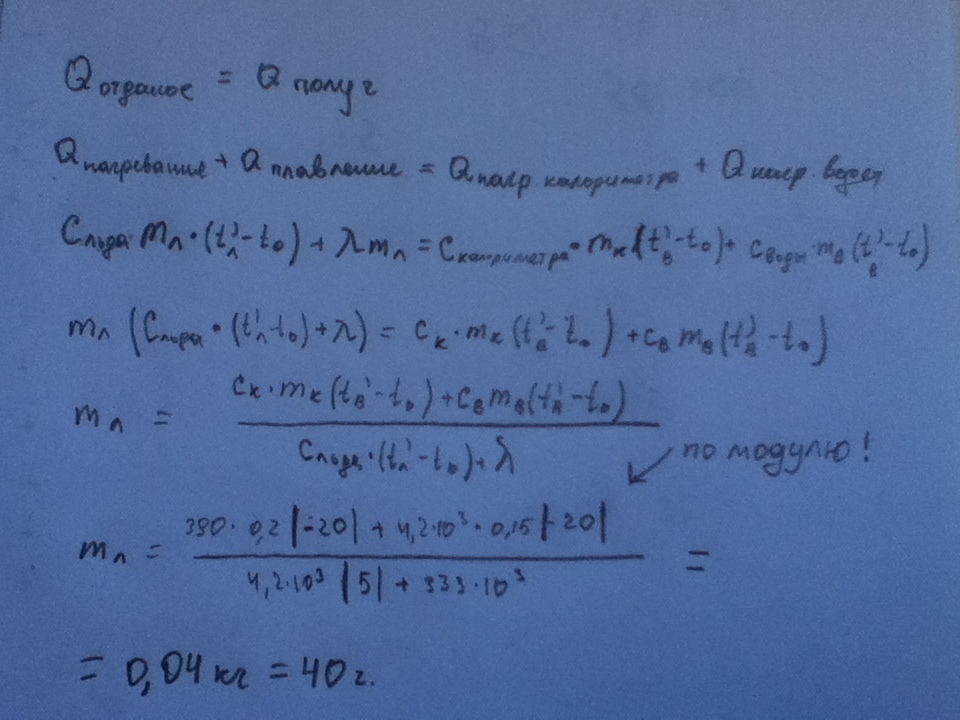 Qотданое = Q получ
Qнагревание + Q плавление = Qнагр. калориметра + Q нагр. водят
Cльда · mл · (tл' - t₀) + λmл = Cкалориметра · mк (tв' - t₀) + Cводы · mв (tв' - t₀)
mл (Cльда · (tл' - t₀) + λ) = Cк · mк (tв' - t₀) + Cв mв (tв' - t₀)
mл = (Cк · mк (tв' - t₀) + Cв mв (tл' - t₀)) / (Cльда · (tл' - t₀) + λ)
по модулю!
mл = (390 · 0,2 |-20| + 4,2·10³ · 0,15 |-20|) / (4,2·10³ |5| + 333·10³) =
= 0,04 кг = 40 г.